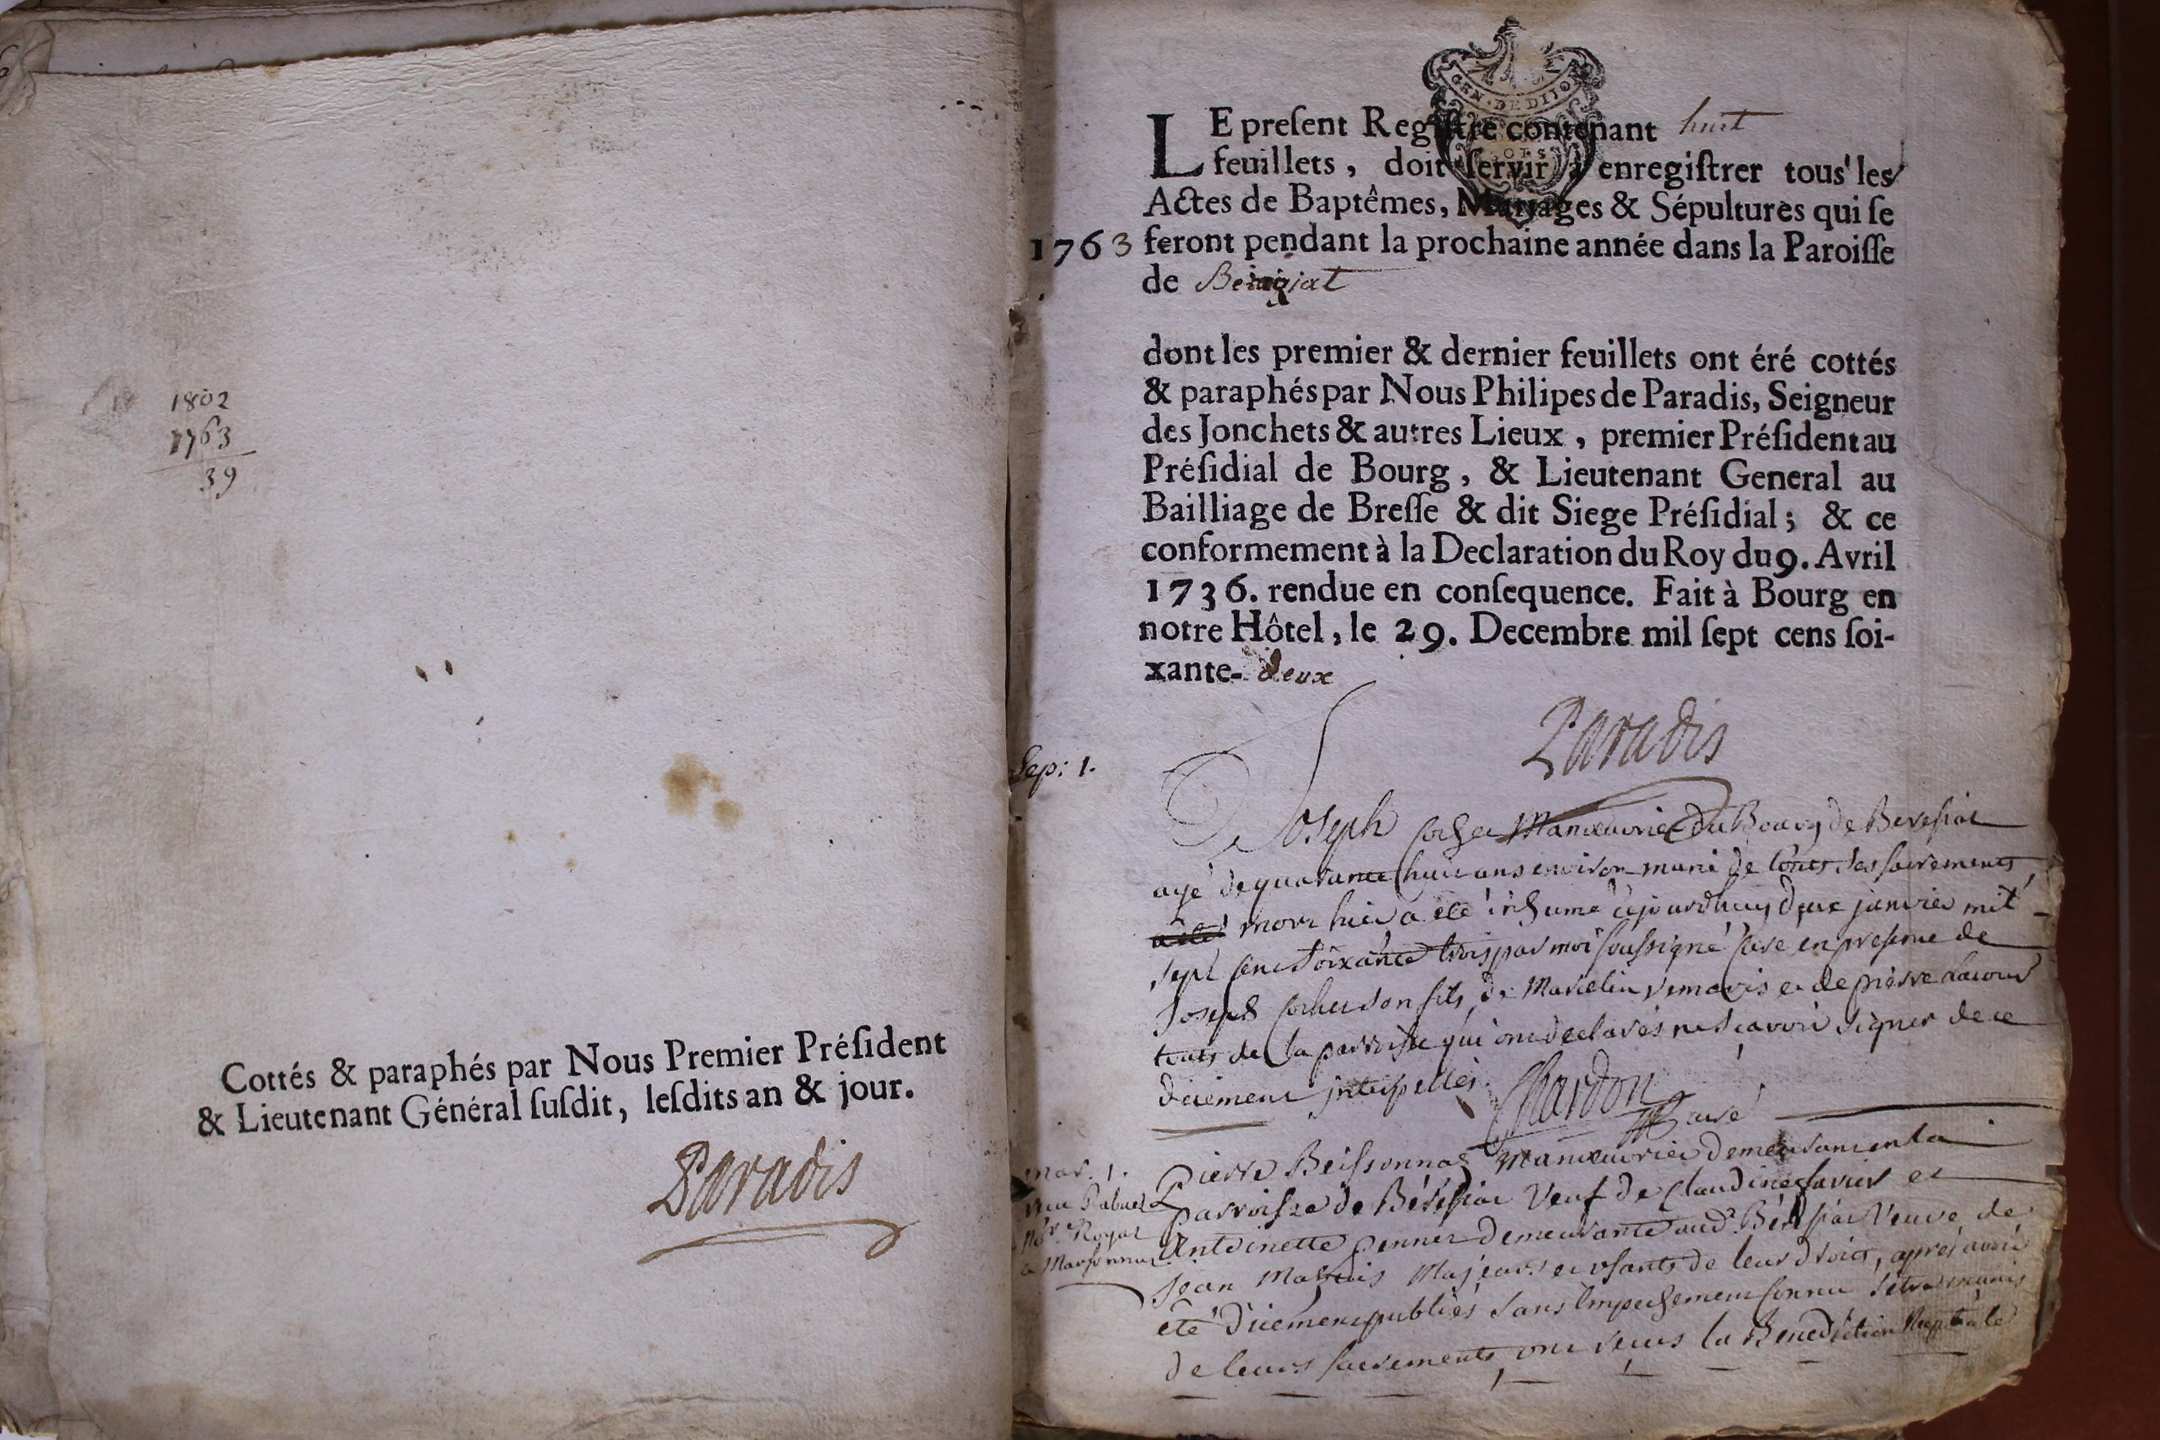 1802
1763
39
Cottés & paraphés par Nous Premier Préſident
& Lieutenant Général ſuſdit, leſdits an & jour.
Paradis
GEN. DE DIJO
LE preſent Regiſtre contenant huit
feuillets, doit ſervir à enregiſtrer tous les
Actes de Baptêmes, Mariages & Sépultures qui ſe
1763 feront pendant la prochaine année dans la Paroiſſe
de
dont les premier & dernier feuillets ont éré cottés
& paraphés par Nous Philipes de Paradis, Seigneur
des Jonchets & autres Lieux, premier Préſident au
Préſidial de Bourg, & Lieutenant General au
Bailliage de Breſſe & dit Siege Préſidial; & ce
conformement à la Declaration du Roy du 9. Avril
1736. rendue en conſequence. Fait à Bourg en
notre Hôtel, le 29. Decembre mil ſept cens ſoi-
xante- deux
Paradis
Sep: 1.
Joseph Manœuvrier du Bourg de Beresiat
agé de quarante huit ans environ muni de touts ses sacrements
mort hier a été inhumé ajourdhuy deux janvier mil
sept cent soixante trois par moi soussigné curé en presence de
Joseph son fils, de et de pierre
touts de la parroisse qui ont declarés ne sçavoir signer de ce
duement interpellés. Chardon
curé
mar. 1.
pierre Manœuvrier demeurant en la
parroisse de Béresiat Veuf de Claudine et
Antoinette demeurante aud.t Béresiat Veuve de
Jean Majeurs et usants de leur droits, après avoir
été duement publiés sans Empechement connu
de leurs sacrements, ont reçus la Benediction Nuptiale